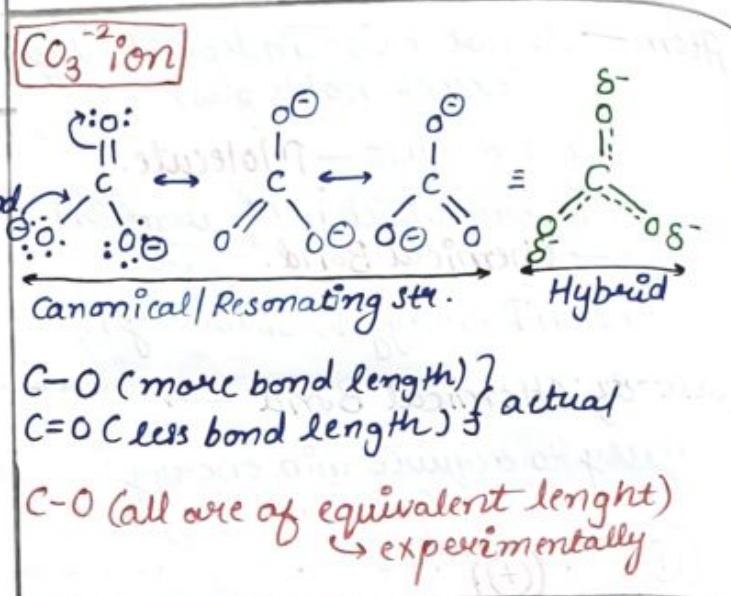 CO₃⁻² ion
:O: O⊖ O⊖ δ⁻
O
C ↔ C ↔ C ≡ C
⊖:O: :O:⊖ O O⊖ O⊖ O O δ⁻ O δ⁻
Canonical/Resonating str. Hybrid
C–O (more bond length) } actual
C=O (less bond length) }
C–O (all are of equivalent lenght)
↳ experimentally